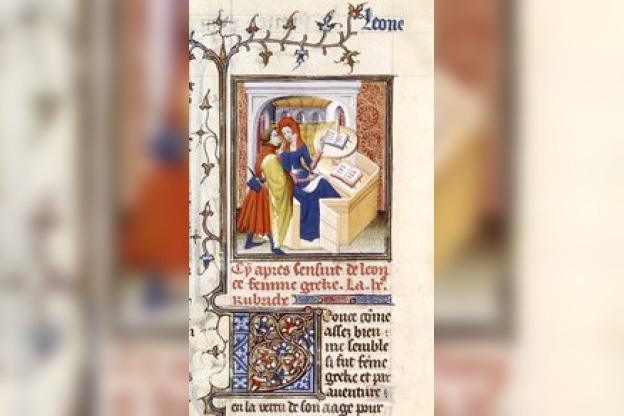 Leonce
Cy apres sensuit de leon
ce femme greke. La
Rubriche
Leonce cõme
assez bien
me semble
si fut fẽme
greke et par
auenture
en la vertu de son aage pour